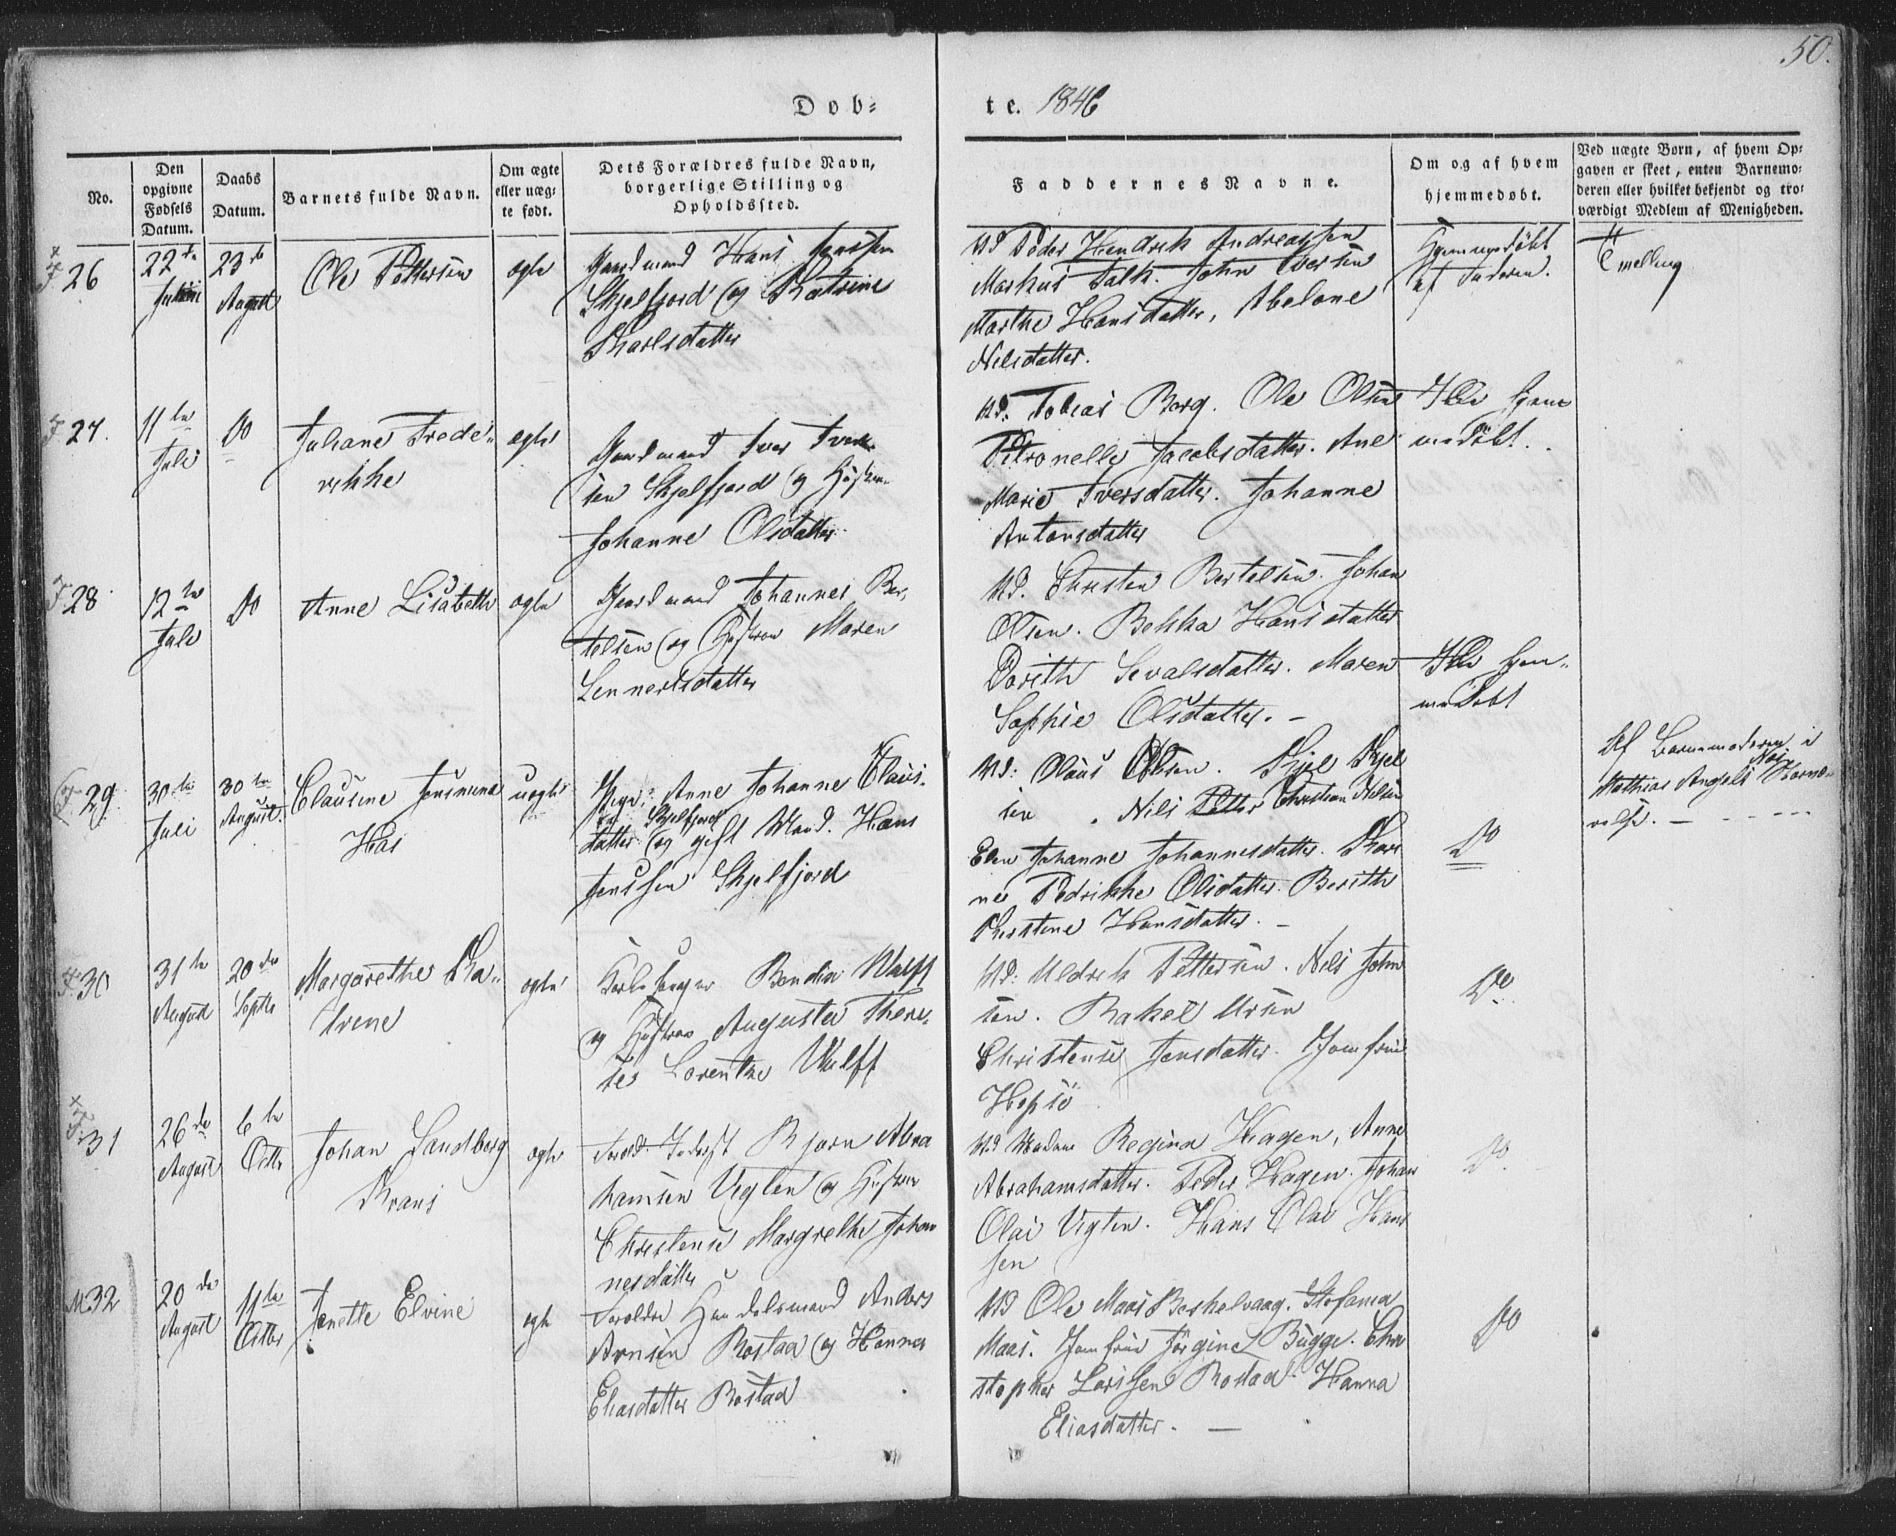 50.
Døb-
te. 1846
No.
Den opgivne Fødsels Datum.
Daabs Datum.
Barnets fulde Navn.
Om ægte eller uægte født.
Dets Forældres fulde Navn, borgerlige Stilling og Opholdssted.
Faddernes Navne.
Om og af hvem hjemmedøbt.
Ved uægte Børn, af hvem Opgaven er skeet, enten Barnemoderen eller hvilket bekjendt og troværdigt Medlem af Menigheden.
26
22de
23de
August
Ole Pettersen
ægte
Gaardmand Hans Jenssen
Skjelfjord og Katrine
Karlsdatter
Vid Peder Hendrik Andreassen
Markus Falk. John Iversen
Marthe Hansdatter, Abelone
Nilsdatter.
Hjemmedøbt
af Faderen.
27.
11te
Juli
Do
Juliane Frede-
rikke
ægte
Gaardmand Iver Iver-
sen Skjelfjord og Hustru
Johanne Olsdatter
Vd. Tobias Borg. Ole Olsen
Petronelle Jacobsdatter. Ane
Marie Iversdatter. Johanne
Antonsdatter
Ikke hjem
medøbt.
28
12te
Juli
Do
Anne Lisabeth
ægte
Gaardmand Johannes Ber-
telsen og Hustrue Maren
Lennertsdatter
Vd. Christen Bertelsen. Johan
Olsen. Bekka Hansdatter
Dorith Sevalsdatter. Maren
Sophie Olsdatter. -
Ikke hjem-
medøbt
29
30te
Juli
30te
August.
Clausine Jensmine
Hai
uægte
Pige: Anne Johanne Claus-
datter Skjelfjord og gift Mand. Hans
Jenssen Skjelfjord
Vd: Olaus Olsen. Kjel Kjel
sen. Nils Petter Christian Nilsen
Elen Johanne Johannesdatter. Kari
ne Pedrikke Olsdatter. Berith
Kirstine Hansdatter. -
Do
Af Barnemoderen i
Mathias Angels Nær-
velse. -
30
31te
August
20de
Septbr
Margarethe Ka-
trine
ægte
Kirkesanger Bendix Wulff
og Hustrue Augusta There-
se Lorentze Wulff
Vd: Uldrik Pettersen. Nils John
sen. Rakel Ursin
Christense Jensdatter. Jomfrue
Hopsø
Do
31
26de
August
6te
Octbr
Johan Sandberg
Krans
ægte
Bjørn Abra
hamsen Vigten og Hustrue
Christense Margrethe Johan
nesdatter
Vd Madam Regina Hagen, Anne
Abrahamsdatter. Peder Hagen. Johan
Olai Vigten. Hans Olai Hans
sen
Do.
32
20de
August
11te
Octbr
Jenette Elvine
ægte
Forældre Handelsmand Anders
Arnsen Rostad og Hanna
Eliasdatter Rostad
Vd Ole Maas Berkelvaag. Stefania
Maas. Jomfrue Jørgine Bugge. Chri
stopher Larssen Rostad. Hanna
Eliasdatter. -
Do